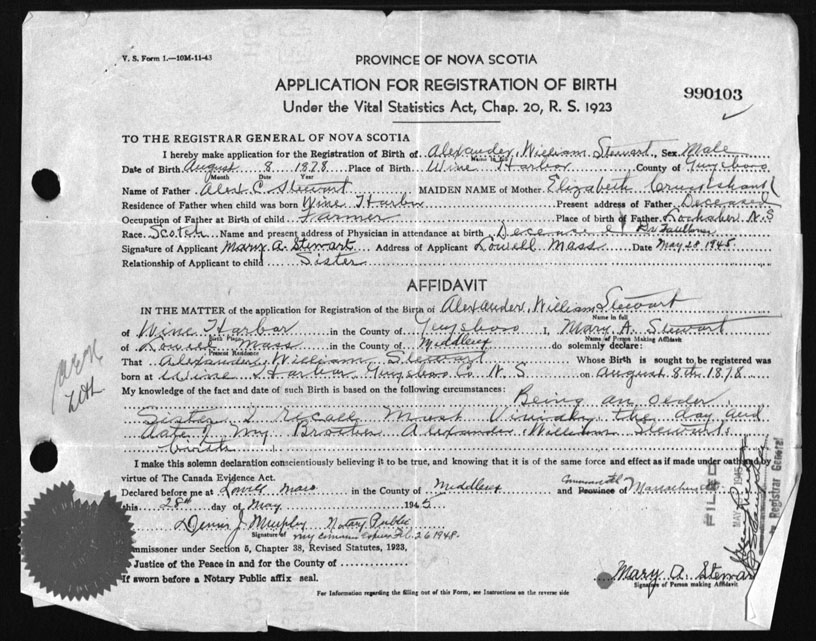 V. S. Form 1.—10M-11-43
PROVINCE OF NOVA SCOTIA
APPLICATION FOR REGISTRATION OF BIRTH
Under the Vital Statistics Act, Chap. 20, R. S. 1923
990103
TO THE REGISTRAR GENERAL OF NOVA SCOTIA
I hereby make application for the Registration of Birth of Alexander William Stewart, Sex Male
Date of Birth August 8 1878 Place of Birth Wine Harbor County of Guysboro
Month Date Year
Name of Father Alex C. Stewart MAIDEN NAME of Mother Elizabeth Cruickshank
Residence of Father when child was born Wine Harbor Present address of Father Deceased
Occupation of Father at Birth of child Farmer Place of birth of Father N.S
Race Scotch Name and present address of Physician in attendance at birth Deceased Dr Faulkner
Signature of Applicant Mary A. Stewart Address of Applicant Lowell Mass Date May 28 1945
Relationship of Applicant to child Sister
AFFIDAVIT
IN THE MATTER of the application for Registration of the Birth of Alexander William Stewart
Name in full
of Wine Harbor in the County of Guysboro I, Mary A. Stewart
Birth Place Name of Person Making Affidavit
of Lowell Mass in the County of Middlesex do solemnly declare:
Present Residence
That Alexander William Stewart Whose Birth is sought to be registered was
born at Wine Harbor Guysboro Co N.S on August 8th 1878
My knowledge of the fact and date of such Birth is based on the following circumstances: Being an
Sister I recall Most Vividly the day and
date of my Brother Alexander William Stewart's
birth
I make this solemn declaration conscientiously believing it to be true, and knowing that it is of the same force and effect as if made under oath and by
virtue of The Canada Evidence Act.
Declared before me at Lowell Mass in the County of Middlesex and Commonwealth Province of Massachusetts
this 28th day of May 1945
Dennis J. Murphy Notary Public
Signature of my commission expires Feb. 26 1948.
Commissioner under Section 5, Chapter 38, Revised Statutes, 1923,
Justice of the Peace in and for the County of
If sworn before a Notary Public affix seal.
Mary A. Stewart
Signature of Person making Affidavit
For Information regarding the filling out of this Form, see Instructions on the reverse side
FILED
MAY 1945
Registrar General